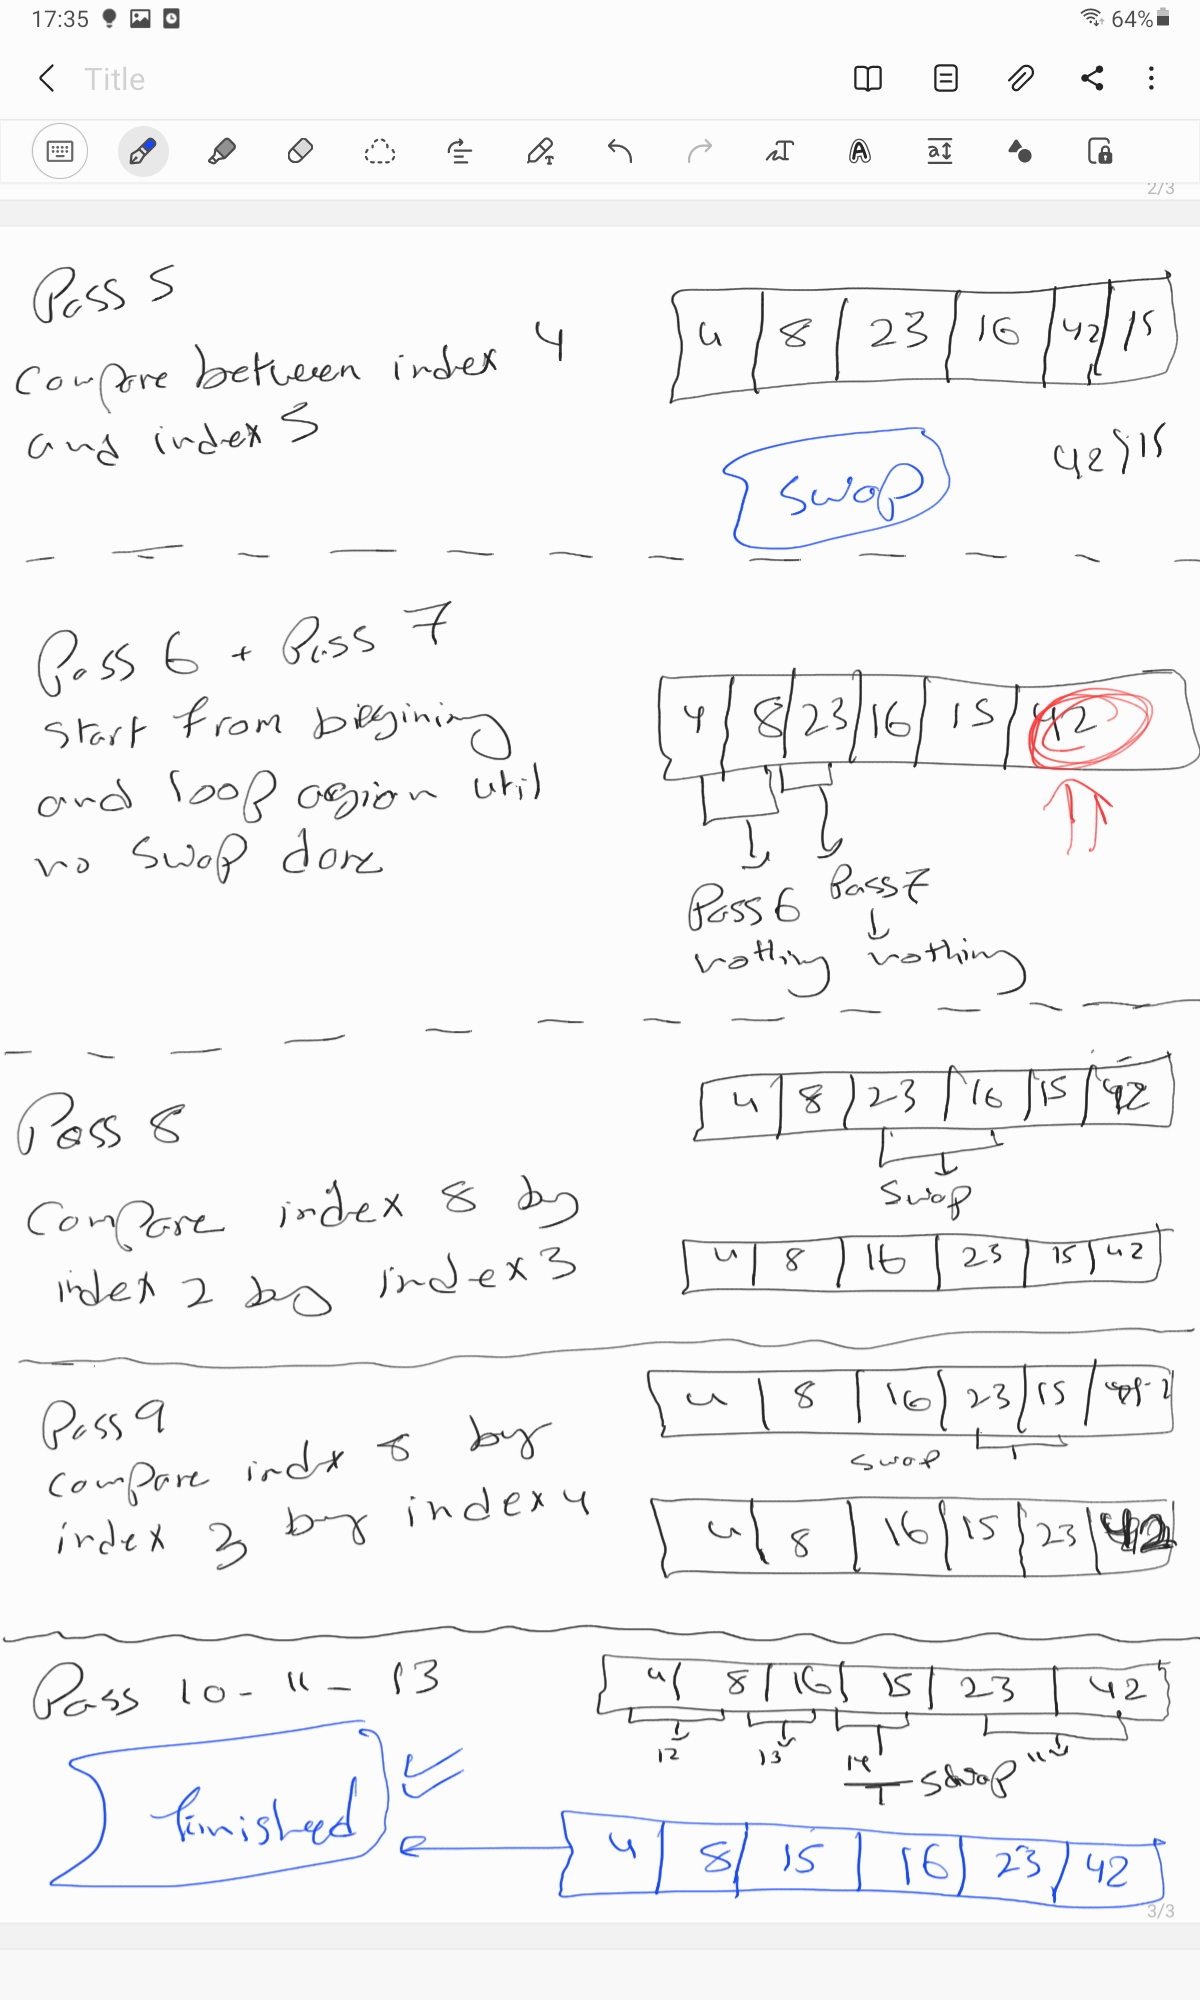 17:35
64%
Title
2/3
Pass 5
compare between index 4
and index 5
4 8 23 16 42 15
42 > 15
swap
Pass 6 + Pass 7
start from biegining
and loop agion util
no swap done
4 8 23 16 15 42
Pass 6 Pass 7
nothing nothing
Pass 8
compare index 8 by
index 2 by index 3
4 8 23 16 15 42
swap
4 8 16 23 15 42
Pass 9
compare indx 8 by
index 3 by index 4
4 8 16 23 15
swap
4 8 16 15 23 42
Pass 10 - 11 - 13
4 8 16 15 23 42
12 13 14 swap 11
finished
4 8 15 16 23 42
3/3